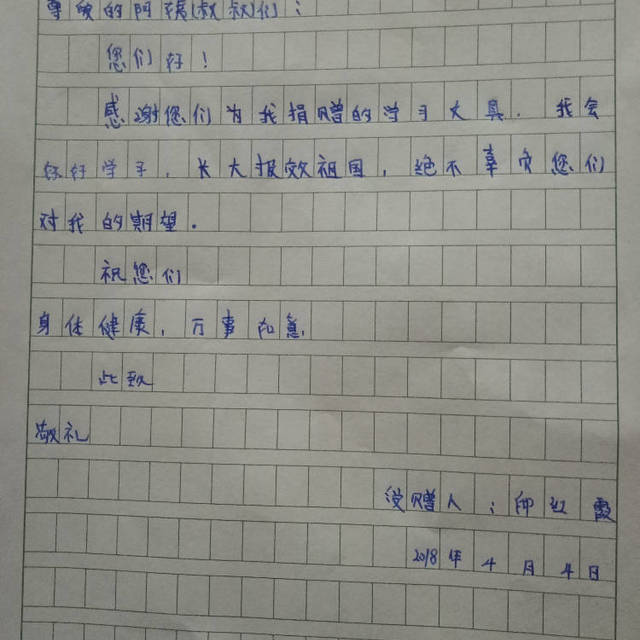 尊敬的阿姨(叔叔)们：
您们好！
感谢您们为我捐赠的学习文具．我会
好好学习，长大报效祖国，绝不辜负您们
对我的期望．
祝您们
身体健康，万事如意
此致
敬礼
受赠人：邱红霞
2018年4月4日